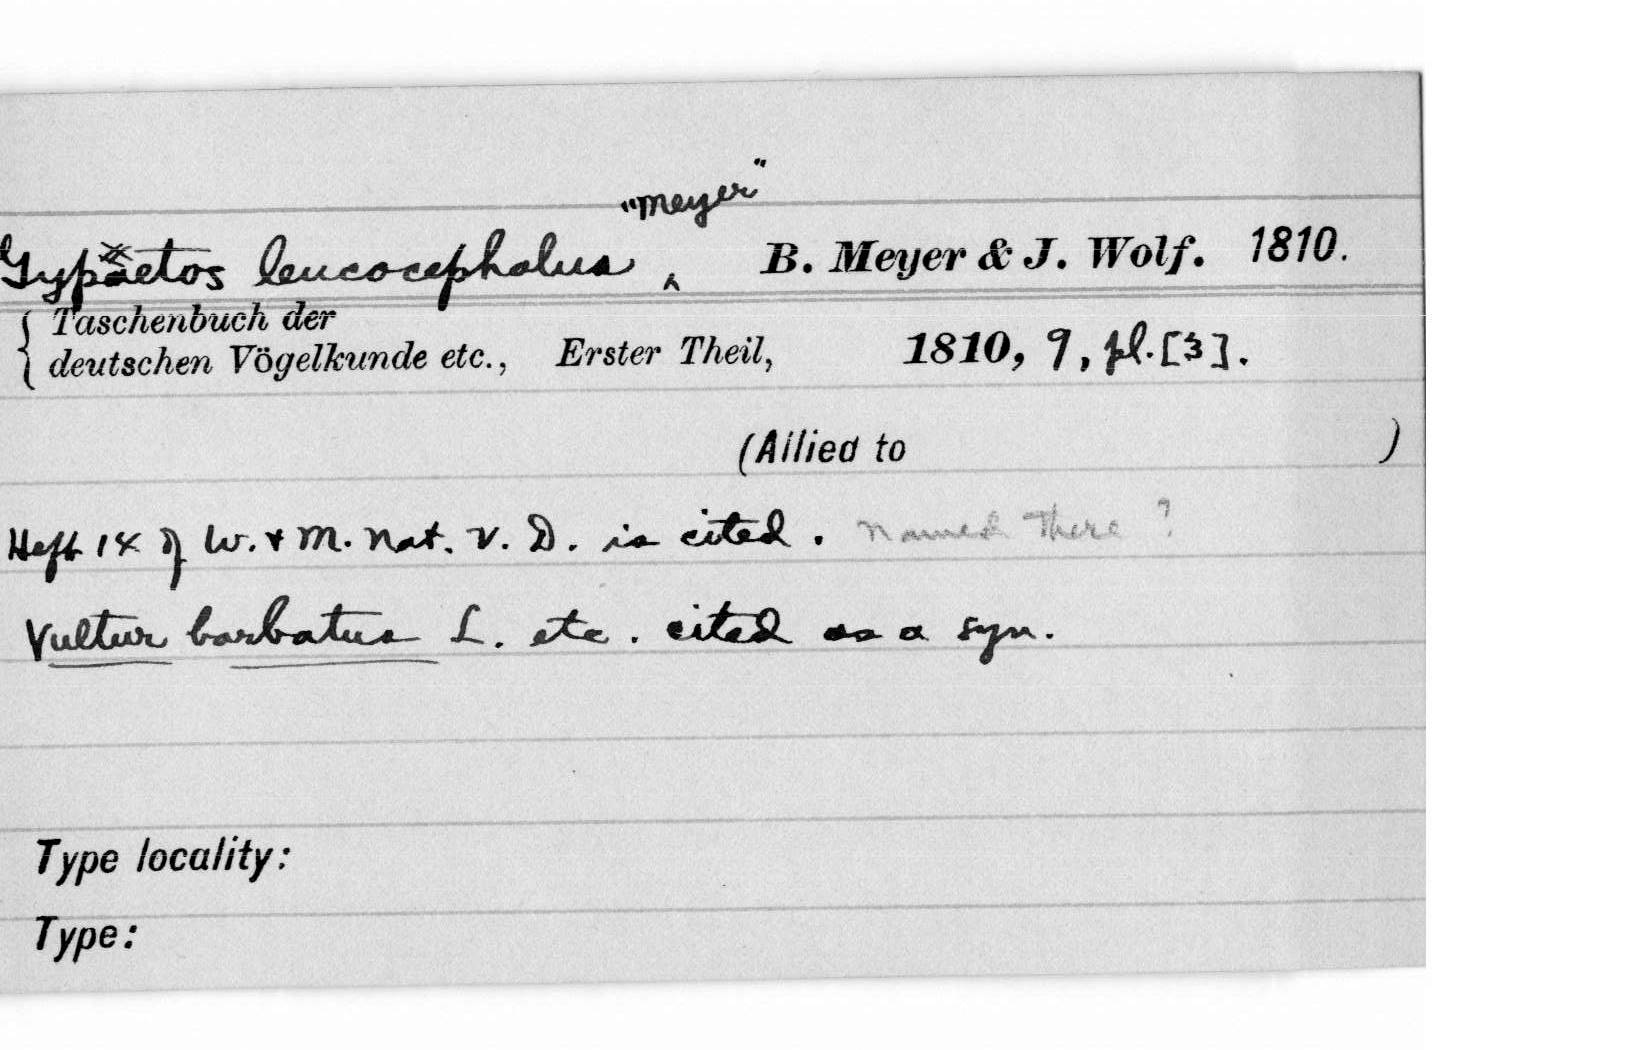 "Meyer"
Gypaëtos leucocephalus ‸ B. Meyer & J. Wolf. 1810.
Taschenbuch der
deutschen Vögelkunde etc., Erster Theil, 1810, 9, pl. [3].
(Allied to )
Heft 1X of W. & M. Nat. V. D. is cited. Named there ?
Vultur barbatus L. etc. cited as a syn.
Type locality:
Type: